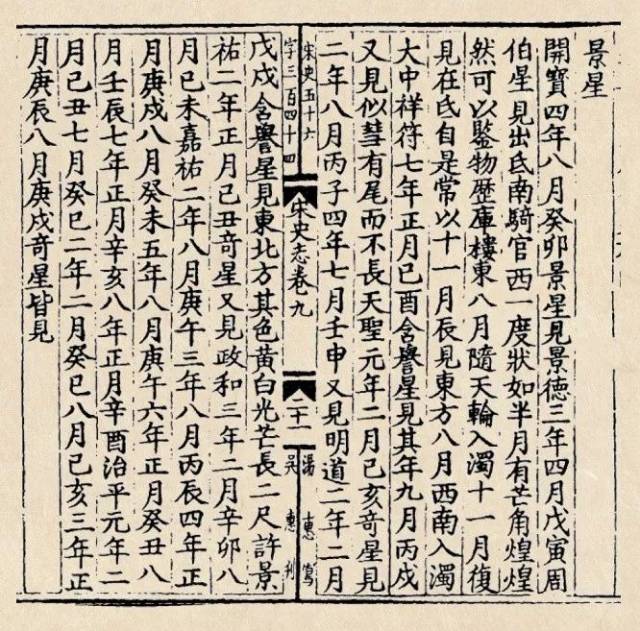 景星
開寶四年八月癸卯景星見景德三年四月戊寅周
伯星見出氐南騎官西一度狀如半月有芒角煌煌
然可以鑒物歷庫樓東八月隨天輪入濁十一月復
見在氐自是常以十一月辰見東方八月西南入濁
大中祥符七年正月己酉含譽星見其年九月丙戌
又見似彗有尾而不長天聖元年二月己亥竒星見
二年八月丙子四年七月壬申又見明道二年二月
宋史五十六
字三百四十四
宋史志卷九
二十一
戊戌含譽星見東北方其色黃白光芒長二尺許景
祐二年正月己丑竒星又見政和三年二月辛卯八
月己未嘉祐二年八月庚午三年八月丙辰四年正
月庚戌八月癸未五年八月庚午六年正月癸丑八
月壬辰七年正月辛亥八年正月辛酉治平元年二
月己丑七月癸巳二年二月癸巳八月己亥三年正
月庚辰八月庚戌竒星皆見